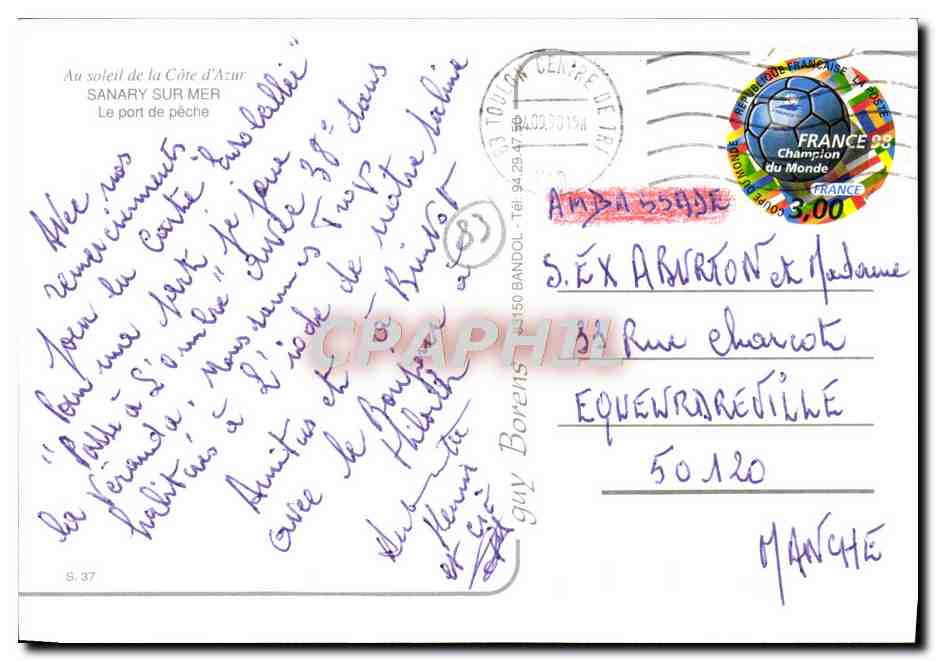 Au soleil de la Côte d'Azur
SANARY SUR MER
Le port de pêche
Avec nos
remerciments
pour la Carte Ensoleillée"
"Pour une part, je joue
Passe à L'ombre" avec 38° dans
la Véranda, Nous sommes Trop
habitués à L'iode de notre
Amitiés et à Bientôt
avec le Bonjour à
et
83
S. 37
guy Borens
83150 BANDOL - Tél. 94.29.47.50
83 TOULON CENTRE DE TRI
REPUBLIQUE FRANÇAISE LA POSTE
COUPE DU MONDE
FRANCE 98
Champion
du Monde
FRANCE
3,00
AMBASSADE
S. EX ABURTON et Madame
33 Rue Charcot
EQUEURDREVILLE
50120
MANCHE
CPAPHIL